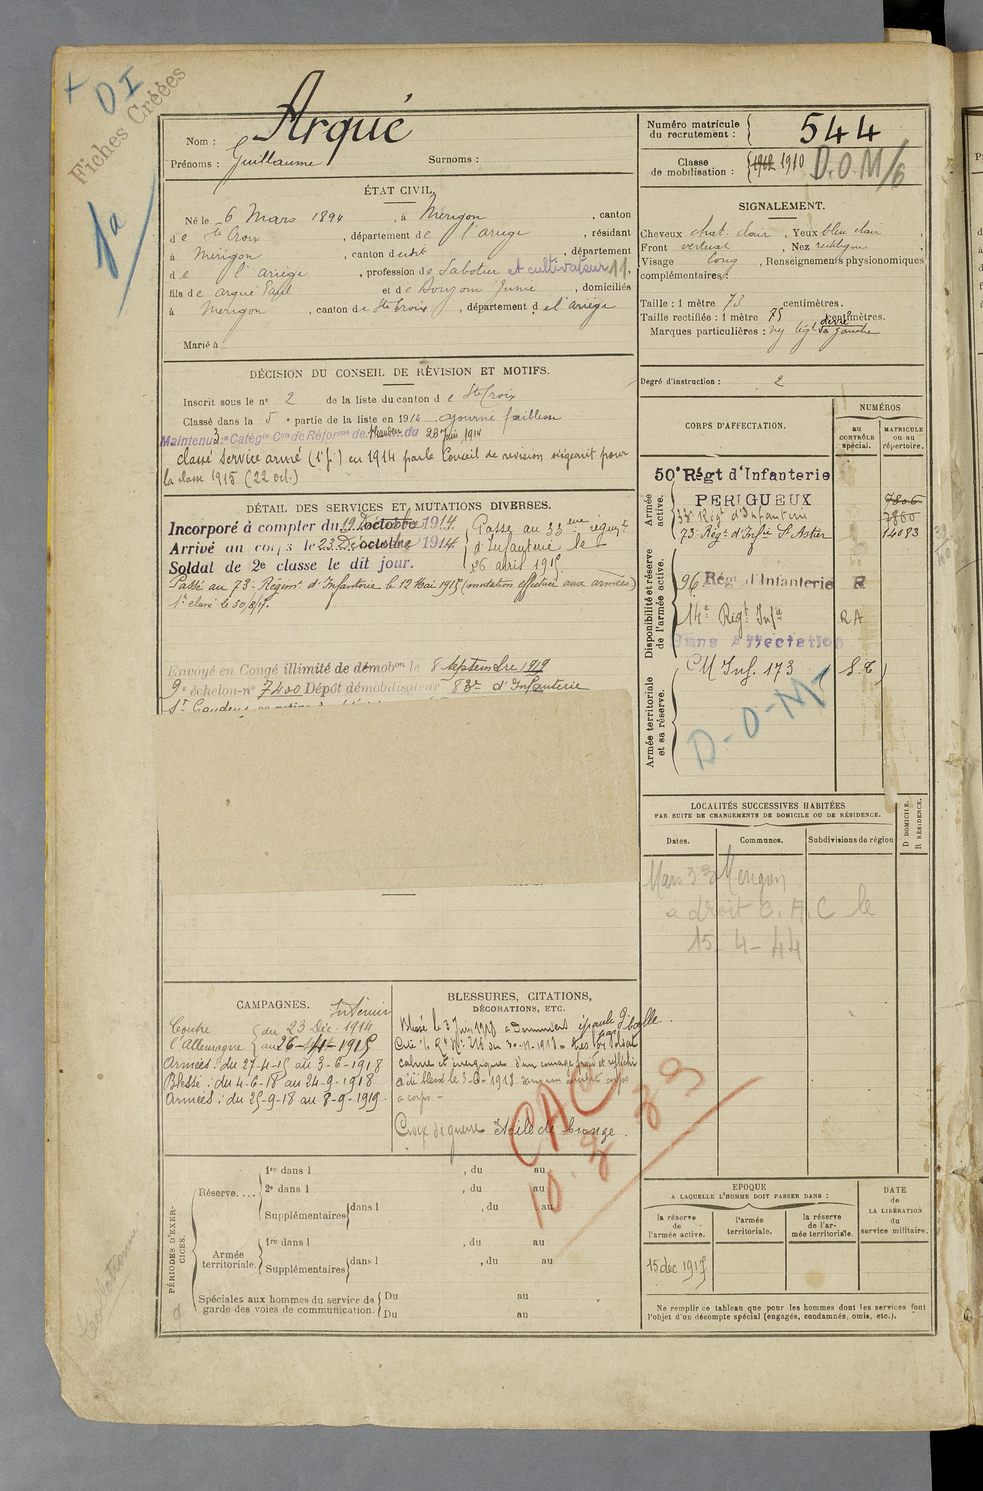 + D I
Fiches Créées
1a
Nom : Arqué
Prénoms : Guillaume Surnoms :
ÉTAT CIVIL.
Né le 6 Mars 1894, à Mérigon, canton
de Ste Croix, département de l'ariège, résidant
à Mérigon, canton dudit, département
de l'ariège, profession de Sabotier et cultivateur 11,
fils de arqué Paul et de Junie, domiciliés
à Merigon, canton de Ste Croix, département de l'ariège
Marié à
DÉCISION DU CONSEIL DE RÉVISION ET MOTIFS.
Inscrit sous le nº 2 de la liste du canton de Ste Croix
Classé dans la 5e partie de la liste en 1914 ajourné faiblesse
Maintenu 3e Catégie Con de Réforme de du 28 Juin 1914
classé service armé (1e p.) en 1914 par le Conseil de revision siégeant pour
la classe 1915 (22 oct.)
DÉTAIL DES SERVICES ET MUTATIONS DIVERSES.
Incorporé à compter du 19 Décembre octobre 1914.
Arrivé au corps le 23 Décembre octobre 1914.
Soldat de 2e classe le dit jour.
Passé au 33eme régimt
d'Infanterie le
26 avril 1915
Passé au 73e Régimt d'Infanterie le 12 Mai 1915 (mutation effectuée aux armées)
Envoyé en Congé illimité de démobon le 8 Septembre 1919
9e échelon-nº 7400 Dépôt démobilisateur 83e d'Infanterie
St Gaudens
CAMPAGNES.
Intérieur
Contre l'Allemagne
du 23 Déc. 1914
au 26-4-1915
Armées : du 27-4-15 au 3-6-1918
Blessé : du 4-6-18 au 24-9-1918
Armées : du 25-9-18 au 8-9-1919.
BLESSURES, CITATIONS,
DÉCORATIONS, ETC.
Blessé le 3 Juin 1918 à épaule g. balle
Cité du 30-11-1918 = très bon soldat
calme et énergique d'un courage froid et réfléchi
a été blessé le 3-6-1918 dans un combat corps
à corps -
Croix de guerre Étoile de bronze.
CAC
10.3 39
PÉRIODES D'EXERCICES.
Réserve....
1re dans l , du au
2e dans l , du au
Supplémentaires dans l , du au
Armée territoriale.
1re dans l , du au
Supplémentaires dans l , du au
Spéciales aux hommes du service de garde des voies de communication.
Du au
Du au
Numéro matricule du recrutement : 544
Classe de mobilisation : 1912 1910 D.O.M/6
SIGNALEMENT.
Cheveux chat. clair, Yeux bleu clair,
Front vertical, Nez rectiligne,
Visage long, Renseignements physionomiques
complémentaires :
Taille : 1 mètre 73 centimètres.
Taille rectifiée : 1 mètre 75 centimètres.
Marques particulières :
Degré d'instruction : 2
CORPS D'AFFECTATION.
NUMÉROS
au CONTRÔLE spécial.
MATRICULE ou au répertoire.
Armée active.
50e Régt d'Infanterie
PERIGUEUX 7806
33e Régt d'Infanterie 7860
73e Régt d'Infie St Astier 14083
Disponibilité et réserve de l'armée active.
96 Régt d'Infanterie R
14e Régt Infie RA
Sans affectation
Armée territoriale et sa réserve.
CM Inf. 173
D-O-M
LOCALITÉS SUCCESSIVES HABITÉES
PAR SUITE DE CHANGEMENTS DE DOMICILE OU DE RÉSIDENCE.
Dates. Communes. Subdivisions de région
D DOMICILE.
R RÉSIDENCE.
Mars 33 Merigon
a droit C.A.C le
15 4-44
EPOQUE
A LAQUELLE L'HOMME DOIT PASSER DANS :
la réserve de l'armée active.
l'armée territoriale.
la réserve de l'armée territoriale.
DATE de LA LIBÉRATION du service militaire.
15 dec 1917
Ne remplir ce tableau que pour les hommes dont les services font
l'objet d'un décompte spécial (engagés, condamnés, omis, etc.).